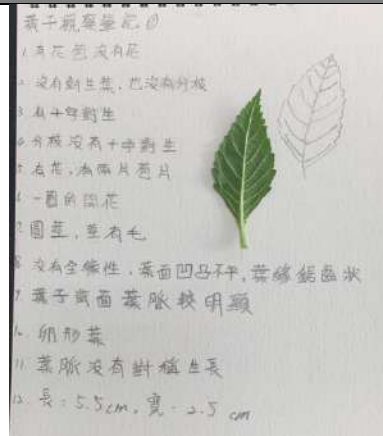 葉子觀察筆記①
1. 有花苞沒有花
2. 沒有對生葉,也沒有分枝
3. 有十字對生
4. 分枝沒有十字對生
5. 有花,有兩片苞片
6. 一直的開花
7. 圓莖,莖有毛
8. 沒有全緣性,葉面凹凸不平,葉緣鋸齒狀
9. 葉子背面葉脈較明顯
10. 卵形葉
11. 葉脈沒有對稱生長
12. 長:5.5cm,寬:2.5 cm